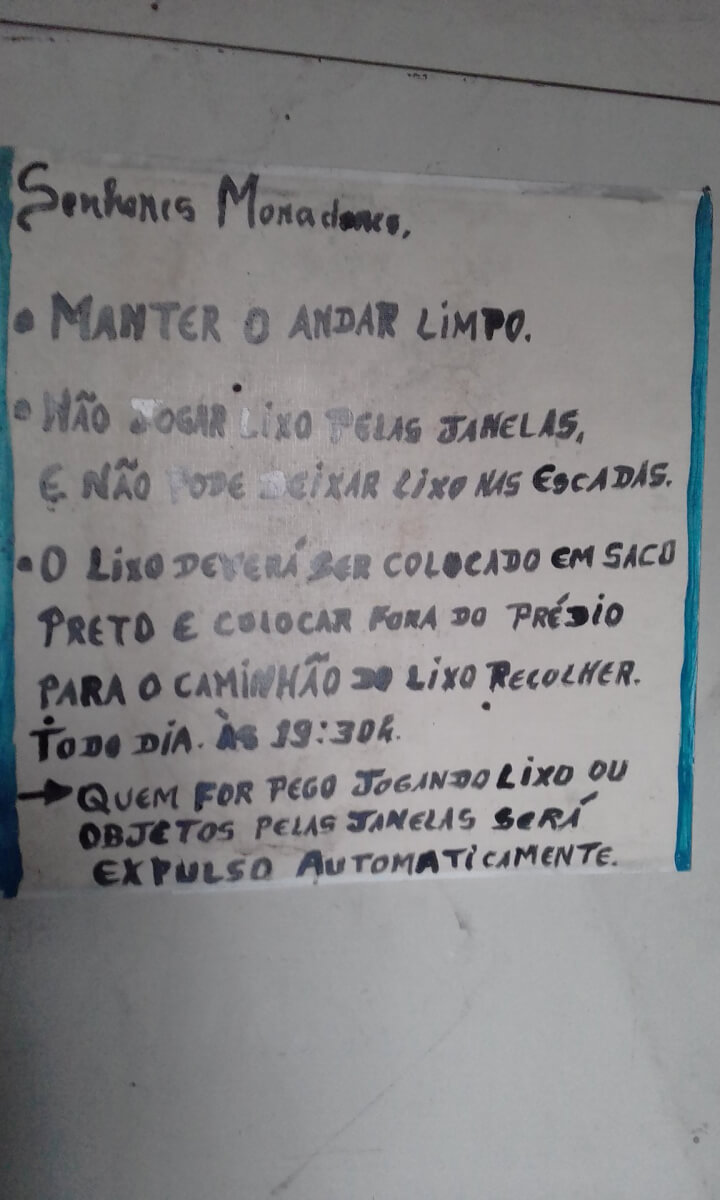 Senhores Moradores,
• MANTER O ANDAR LIMPO.
• NÃO JOGAR LIXO PELAS JANELAS,
E NÃO PODE DEIXAR LIXO NAS ESCADAS.
• O LIXO DEVERÁ SER COLOCADO EM SACO
PRETO E COLOCAR FORA DO PRÉDIO
PARA O CAMINHÃO DO LIXO RECOLHER.
TODO DIA. ÀS 19:30h.
→ QUEM FOR PEGO JOGANDO LIXO OU
OBJETOS PELAS JANELAS SERÁ
EXPULSO AUTOMATICAMENTE.